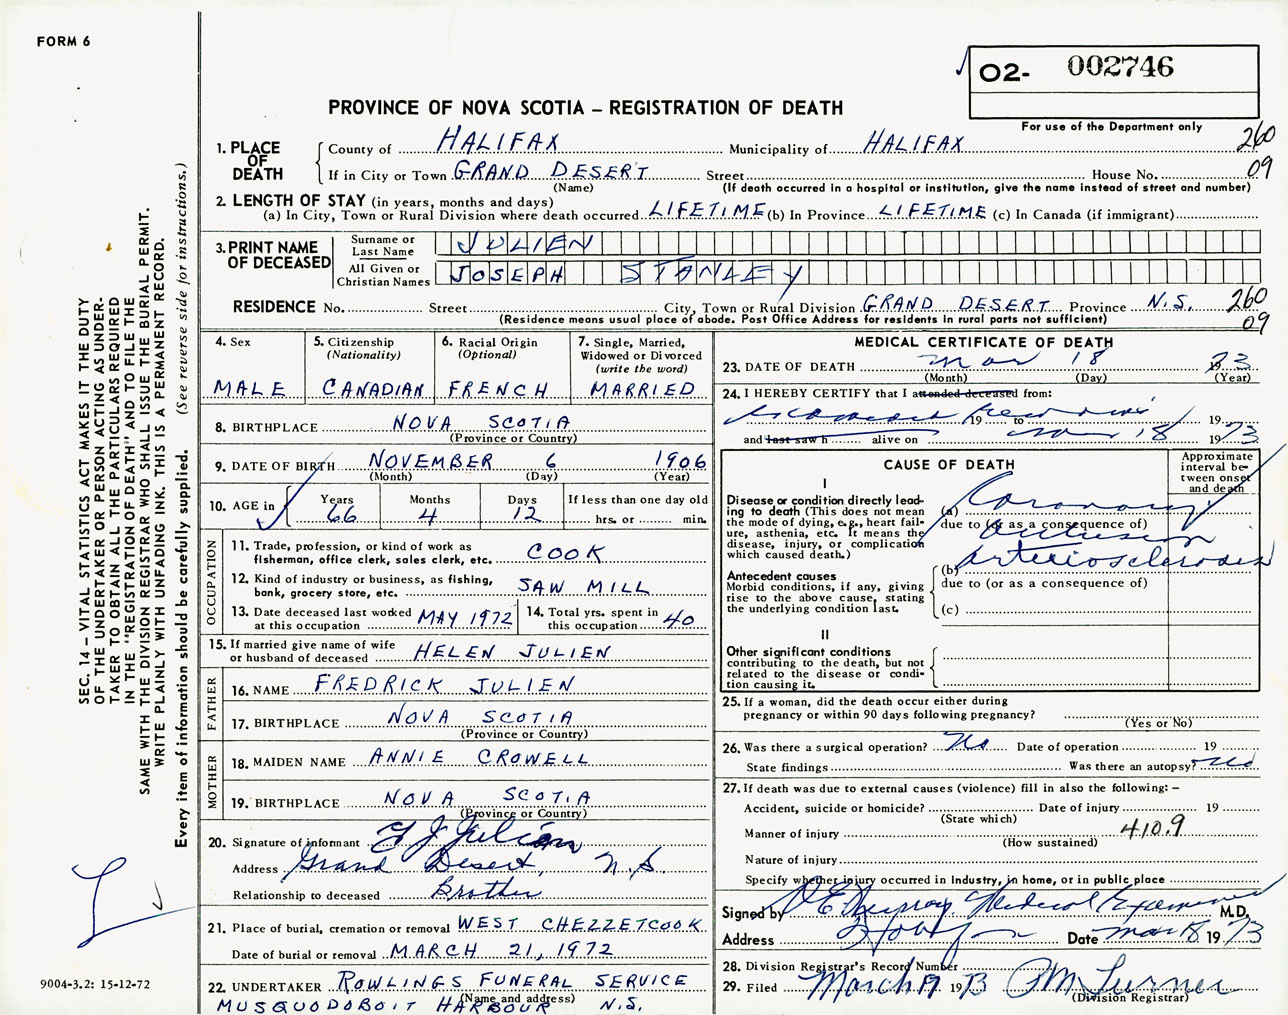 FORM 6
02- 002746
PROVINCE OF NOVA SCOTIA – REGISTRATION OF DEATH
For use of the Department only
260
09
1. PLACE OF DEATH
County of HALIFAX Municipality of HALIFAX
If in City or Town GRAND DESERT Street House No.
(Name) (If death occurred in a hospital or institution, give the name instead of street and number)
2. LENGTH OF STAY (in years, months and days)
(a) In City, Town or Rural Division where death occurred LIFETIME (b) In Province LIFETIME (c) In Canada (if immigrant)
3. PRINT NAME OF DECEASED
Surname or Last Name JULIEN
All Given or Christian Names JOSEPH STANLEY
RESIDENCE No. Street City, Town or Rural Division GRAND DESERT Province N.S. 260
09
(Residence means usual place of abode. Post Office Address for residents in rural parts not sufficient)
4. Sex
MALE
5. Citizenship
(Nationality)
CANADIAN
6. Racial Origin
(Optional)
FRENCH
7. Single, Married,
Widowed or Divorced
(write the word)
MARRIED
8. BIRTHPLACE NOVA SCOTIA
(Province or Country)
9. DATE OF BIRTH NOVEMBER 6 1906
(Month) (Day) (Year)
10. AGE in
Years Months Days If less than one day old
66 4 12 hrs. or min.
OCCUPATION
11. Trade, profession, or kind of work as
fisherman, office clerk, sales clerk, etc. COOK
12. Kind of industry or business, as fishing,
bank, grocery store, etc. SAW MILL
13. Date deceased last worked
at this occupation MAY 1972
14. Total yrs. spent in
this occupation 40
15. If married give name of wife
or husband of deceased HELEN JULIEN
FATHER
16. NAME FREDRICK JULIEN
17. BIRTHPLACE NOVA SCOTIA
(Province or Country)
MOTHER
18. MAIDEN NAME ANNIE CROWELL
19. BIRTHPLACE NOVA SCOTIA
(Province or Country)
20. Signature of informant J Julien
Address Grand Desert, N.S.
Relationship to deceased Brother
21. Place of burial, cremation or removal WEST CHEZZETCOOK
Date of burial or removal MARCH 21, 1972
22. UNDERTAKER ROWLINGS FUNERAL SERVICE
(Name and address)
MUSQUODOBOIT HARBOUR N.S.
MEDICAL CERTIFICATE OF DEATH
23. DATE OF DEATH Mar 18 1973
(Month) (Day) (Year)
24. I HEREBY CERTIFY that I attended deceased from:
19 to 19
and last saw h alive on 18 1973
CAUSE OF DEATH
Approximate
interval be-
tween onset
and death
I
Disease or condition directly lead-
ing to death (This does not mean
the mode of dying, e.g., heart fail-
ure, asthenia, etc. It means the
disease, injury, or complication
which caused death.)
(a) Coronary
due to (or as a consequence of)
occlusion
Antecedent causes
Morbid conditions, if any, giving
rise to the above cause, stating
the underlying condition last.
(b) Arteriosclerosis
due to (or as a consequence of)
(c)
II
Other significant conditions
contributing to the death, but not
related to the disease or condi-
tion causing it.
25. If a woman, did the death occur either during
pregnancy or within 90 days following pregnancy?
(Yes or No)
26. Was there a surgical operation? No Date of operation 19
State findings Was there an autopsy? No
27. If death was due to external causes (violence) fill in also the following: –
Accident, suicide or homicide? Date of injury 19
(State which)
Manner of injury 410.9
(How sustained)
Nature of injury
Specify whether injury occurred in industry, in home, or in public place
Signed by Medical Examiner M.D.
Address Date Mar 18 1973
28. Division Registrar's Record Number
29. Filed March 19 1973 Turner
(Division Registrar)
SEC. 14 – VITAL STATISTICS ACT MAKES IT THE DUTY
OF THE UNDERTAKER OR PERSON ACTING AS UNDER-
TAKER TO OBTAIN ALL THE PARTICULARS REQUIRED
IN THE "REGISTRATION OF DEATH" AND TO FILE THE
SAME WITH THE DIVISION REGISTRAR WHO SHALL ISSUE THE BURIAL PERMIT.
WRITE PLAINLY WITH UNFADING INK. THIS IS A PERMANENT RECORD.
Every item of information should be carefully supplied. (See reverse side for instructions.)
9004-3.2: 15-12-72